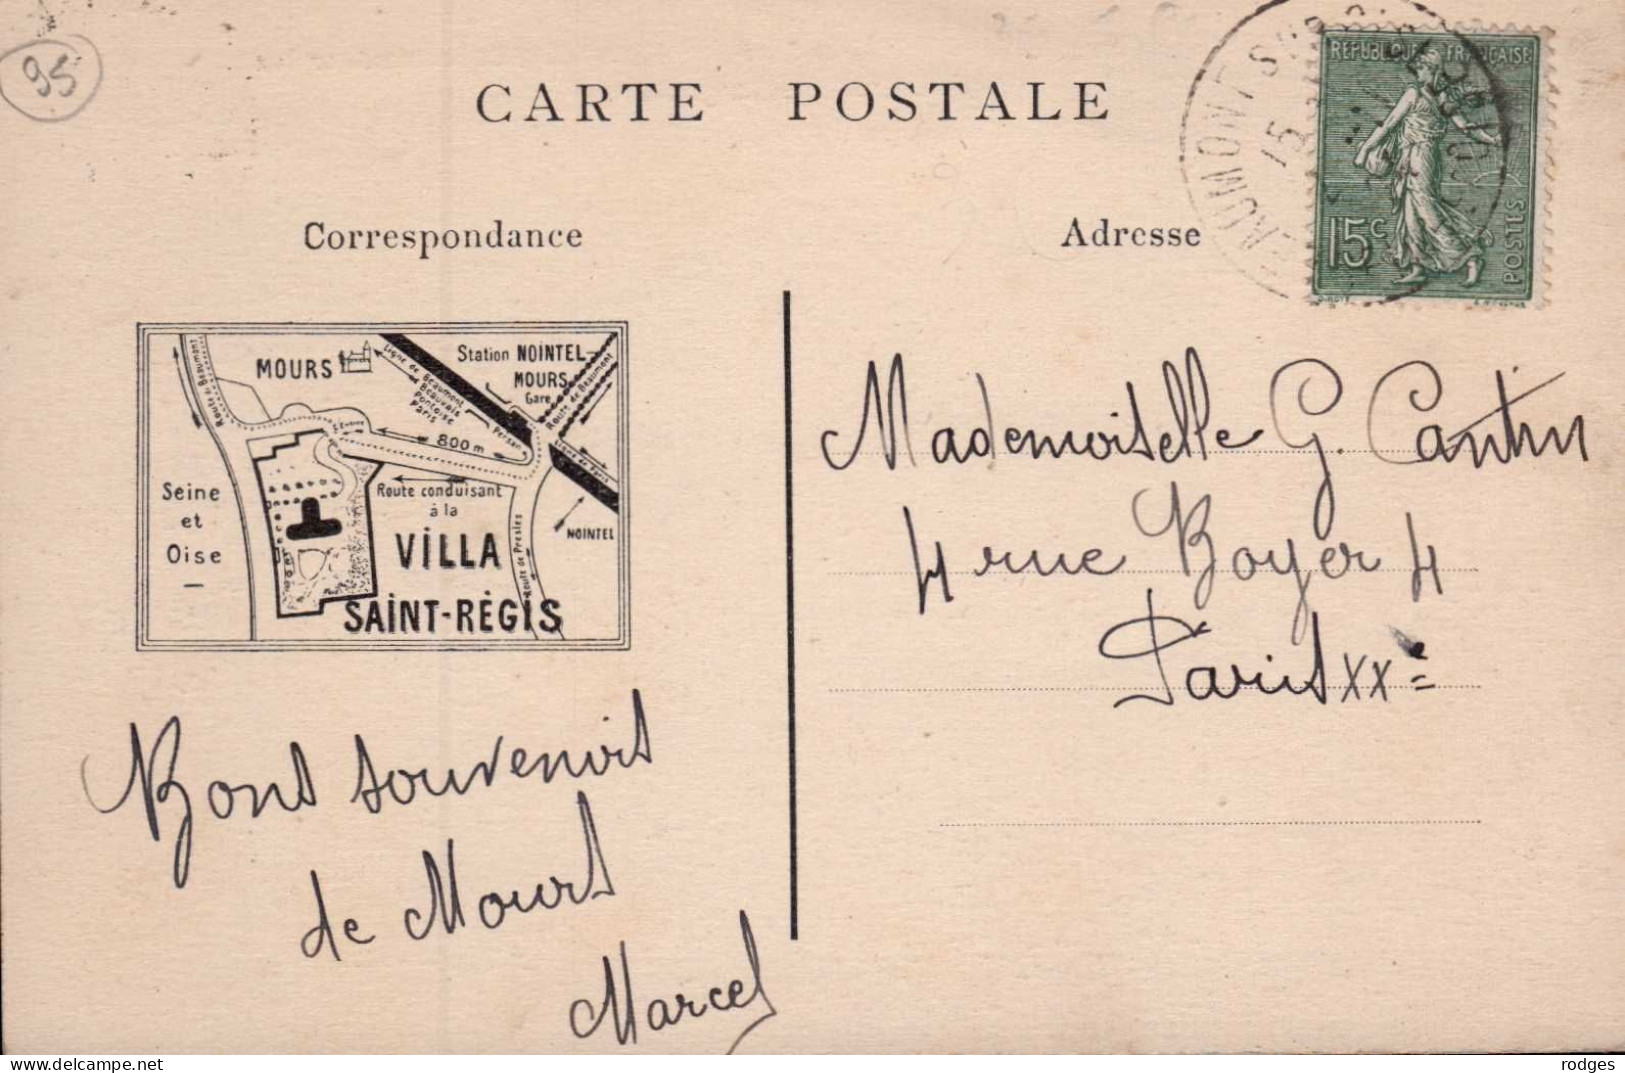 95
CARTE POSTALE
Correspondance
Adresse
RÉPUBLIQUE FRANÇAISE
15c
POSTES
MOURS
Station NOINTEL-
MOURS
Gare
Route de Beaumont
Ligne de Beaumont
Beauvais
Pontoise
Paris
Persan
Route de Beaumont
800 m
Seine
et
Oise
Route conduisant
à la
VILLA
SAINT-RÉGIS
Route de Presles
NOINTEL
Mademoiselle G. Cantin
4 rue Boyer 4
Paris XXe
Bons souvenirs
de Mours
Marcel
delcampe.net
rodges